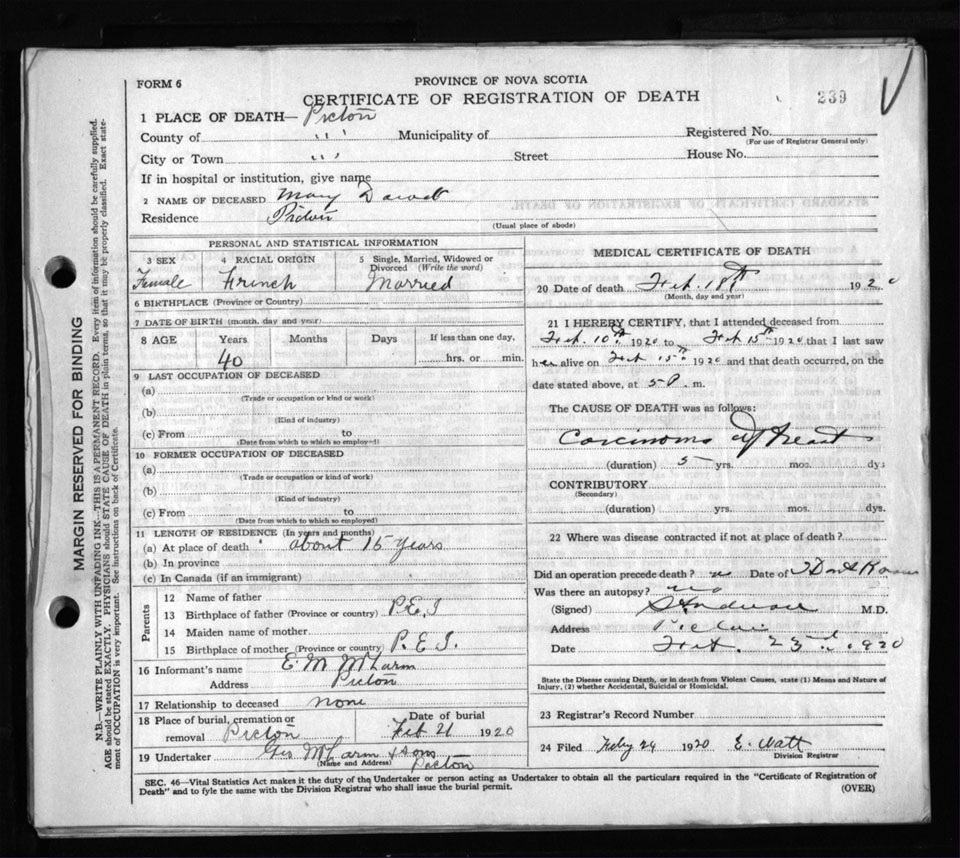 FORM 6
PROVINCE OF NOVA SCOTIA
CERTIFICATE OF REGISTRATION OF DEATH
239
1 PLACE OF DEATH— Picton
County of " " Municipality of Registered No.
(For use of Registrar General only)
City or Town " " Street House No.
If in hospital or institution, give name
2 NAME OF DECEASED Mary
Residence Picton
(Usual place of abode)
PERSONAL AND STATISTICAL INFORMATION
3 SEX 4 RACIAL ORIGIN 5 Single, Married, Widowed or Divorced (Write the word)
Female French Married
6 BIRTHPLACE (Province or Country)
7 DATE OF BIRTH (month, day and year)
8 AGE Years Months Days If less than one day,
40 hrs. or min.
9 LAST OCCUPATION OF DECEASED
(a)
(Trade or occupation or kind or work)
(b)
(Kind of industry)
(c) From to
(Date from which to which so employed)
10 FORMER OCCUPATION OF DECEASED
(a)
(Trade or occupation or kind of work)
(b)
(Kind of industry)
(c) From to
(Date from which to which so employed)
11 LENGTH OF RESIDENCE (In years and months)
(a) At place of death about 15 years
(b) In province
(c) In Canada (if an immigrant)
Parents
12 Name of father
13 Birthplace of father (Province or country) P.E.I
14 Maiden name of mother
15 Birthplace of mother (Province or country) P.E.I.
16 Informant's name E M McLarm
Address Picton
17 Relationship to deceased none
18 Place of burial, cremation or removal Picton Date of burial Feb 21 1920
19 Undertaker Geo McLarm & sons
(Name and Address) Picton
MEDICAL CERTIFICATE OF DEATH
20 Date of death Feb. 18th 1920
(Month, day and year)
21 I HEREBY CERTIFY, that I attended deceased from
Feb. 10th 1920 to Feb 15th 1920 that I last saw
her alive on Feb 15th 1920 and that death occurred, on the
date stated above, at 5 P. m.
The CAUSE OF DEATH was as follows:
Carcinoma of
(duration) 5 yrs. mos. dys
CONTRIBUTORY
(Secondary)
(duration) yrs. mos. dys.
22 Where was disease contracted if not at place of death?
Did an operation precede death? Date of
Was there an autopsy? no
(Signed) M.D.
Address Picton
Date Feb. 23rd 1920
State the Disease causing Death, or in death from Violent Causes, state (1) Means and Nature of
Injury, (2) whether Accidental, Suicidal or Homicidal.
23 Registrar's Record Number
24 Filed Feby 24 1920 E. Watt
Division Registrar
SEC. 46—Vital Statistics Act makes it the duty of the Undertaker or person acting as Undertaker to obtain all the particulars required in the "Certificate of Registration of
Death" and to fyle the same with the Division Registrar who shall issue the burial permit. (OVER)
MARGIN RESERVED FOR BINDING
N.B.—WRITE PLAINLY WITH UNFADING INK—THIS IS A PERMANENT RECORD. Every item of information should be carefully supplied.
AGE should be stated EXACTLY. PHYSICIANS should STATE CAUSE OF DEATH in plain terms, so that it may be properly classified. Exact state-
ment of OCCUPATION is very important. See instructions on back of Certificate.